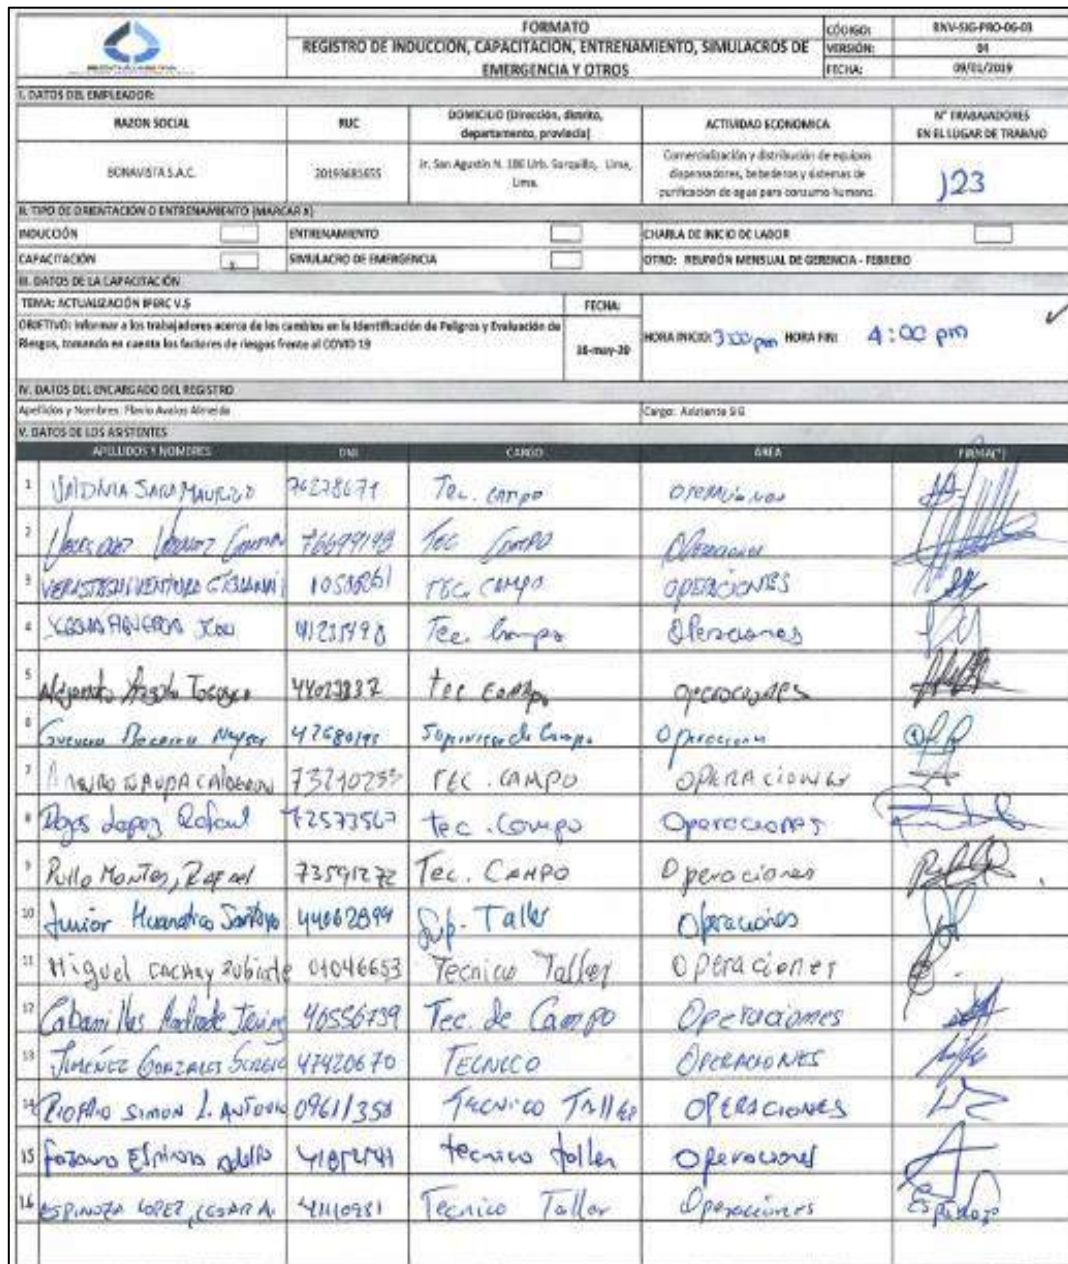 FORMATO
REGISTRO DE INDUCCIÓN, CAPACITACIÓN, ENTRENAMIENTO, SIMULACROS DE EMERGENCIA Y OTROS
CÓDIGO: RNV-SIG-PRO-06-03
VERSIÓN: 04
FECHA: 09/01/2019
I. DATOS DEL EMPLEADOR:
RAZON SOCIAL RUC DOMICILIO (Dirección, distrito, departamento, provincia) ACTIVIDAD ECONOMICA N° TRABAJADORES EN EL LUGAR DE TRABAJO
BONAVISTA S.A.C. Jr. San Agustín N. 186 Urb. Lima, Lima. Comercialización y distribución de equipos dispensadores, bebederos y sistemas de purificación de agua para consumo humano. 123
II. TIPO DE ORIENTACIÓN O ENTRENAMIENTO (MARCAR X)
INDUCCIÓN ENTRENAMIENTO CHARLA DE INICIO DE LABOR
CAPACITACIÓN x SIMULACRO DE EMERGENCIA OTRO: REUNIÓN MENSUAL DE GERENCIA - FEBRERO
III. DATOS DE LA CAPACITACIÓN
TEMA: ACTUALIZACIÓN IPERC V.5 FECHA:
OBJETIVO: Informar a los trabajadores acerca de los cambios en la Identificación de Peligros y Evaluación de Riesgos, tomando en cuenta los factores de riesgos frente al COVID 19
HORA INICIO: 3:00 pm HORA FIN: 4:00 pm
IV. DATOS DEL ENCARGADO DEL REGISTRO
Apellidos y Nombres: Flavio Avalos Almeida Cargo: Asistente SIG
V. DATOS DE LOS ASISTENTES
APELLIDOS Y NOMBRES DNI CARGO AREA FIRMA(*)
1 Tec. campo operaciones
2 76699198 Tec Campo Operaciones
3 VERASTEGUI VENTURA TEC. CAMPO OPERACIONES
4 Tec. Campo Operaciones
5 Alejandro tec campo operaciones
6 Guevara Neyser Supervisor de Campo Operaciones
7 CALDERON TEC. CAMPO OPERACIONES
8 Rojas Lopez Rafael 72573567 tec. Campo Operaciones
9 Pullo Montes, Rafael 73591272 Tec. CAMPO Operaciones
10 Junior Santoyo 44062899 Sup. Taller Operaciones
11 Miguel Cachay Zubiate 01046653 Tecnico Taller Operaciones
12 Andrade 40556739 Tec. de Campo Operaciones
13 JIMENEZ GONZALES SERGIO 47420670 TECNICO OPERACIONES
14 SIMON L. ANTONIO 09611358 TECNICO TALLER OPERACIONES
15 Espinoza Adolfo tecnico taller Operaciones
16 ESPINOZA LOPEZ, CESAR A. 41110981 Tecnico Taller Operaciones